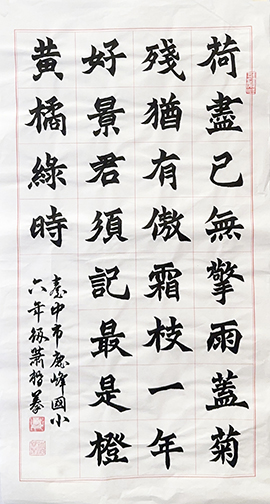 荷盡已無擎雨蓋菊
殘猶有傲霜枝一年
好景君須記最是橙
黃橘綠時
臺中市鹿峰國小
六年級蕭